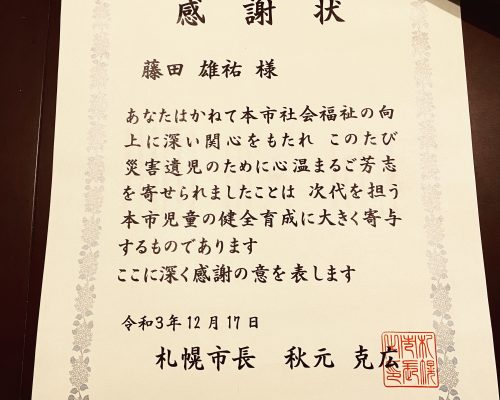 感謝状
藤田 雄祐 様
あなたはかねて本市社会福祉の向
上に深い関心をもたれ このたび
災害遺児のために心温まるご芳志
を寄せられましたことは 次代を担う
本市児童の健全育成に大きく寄与
するものであります
ここに深く感謝の意を表します
令和3年12月17日
札幌市長 秋元 克広